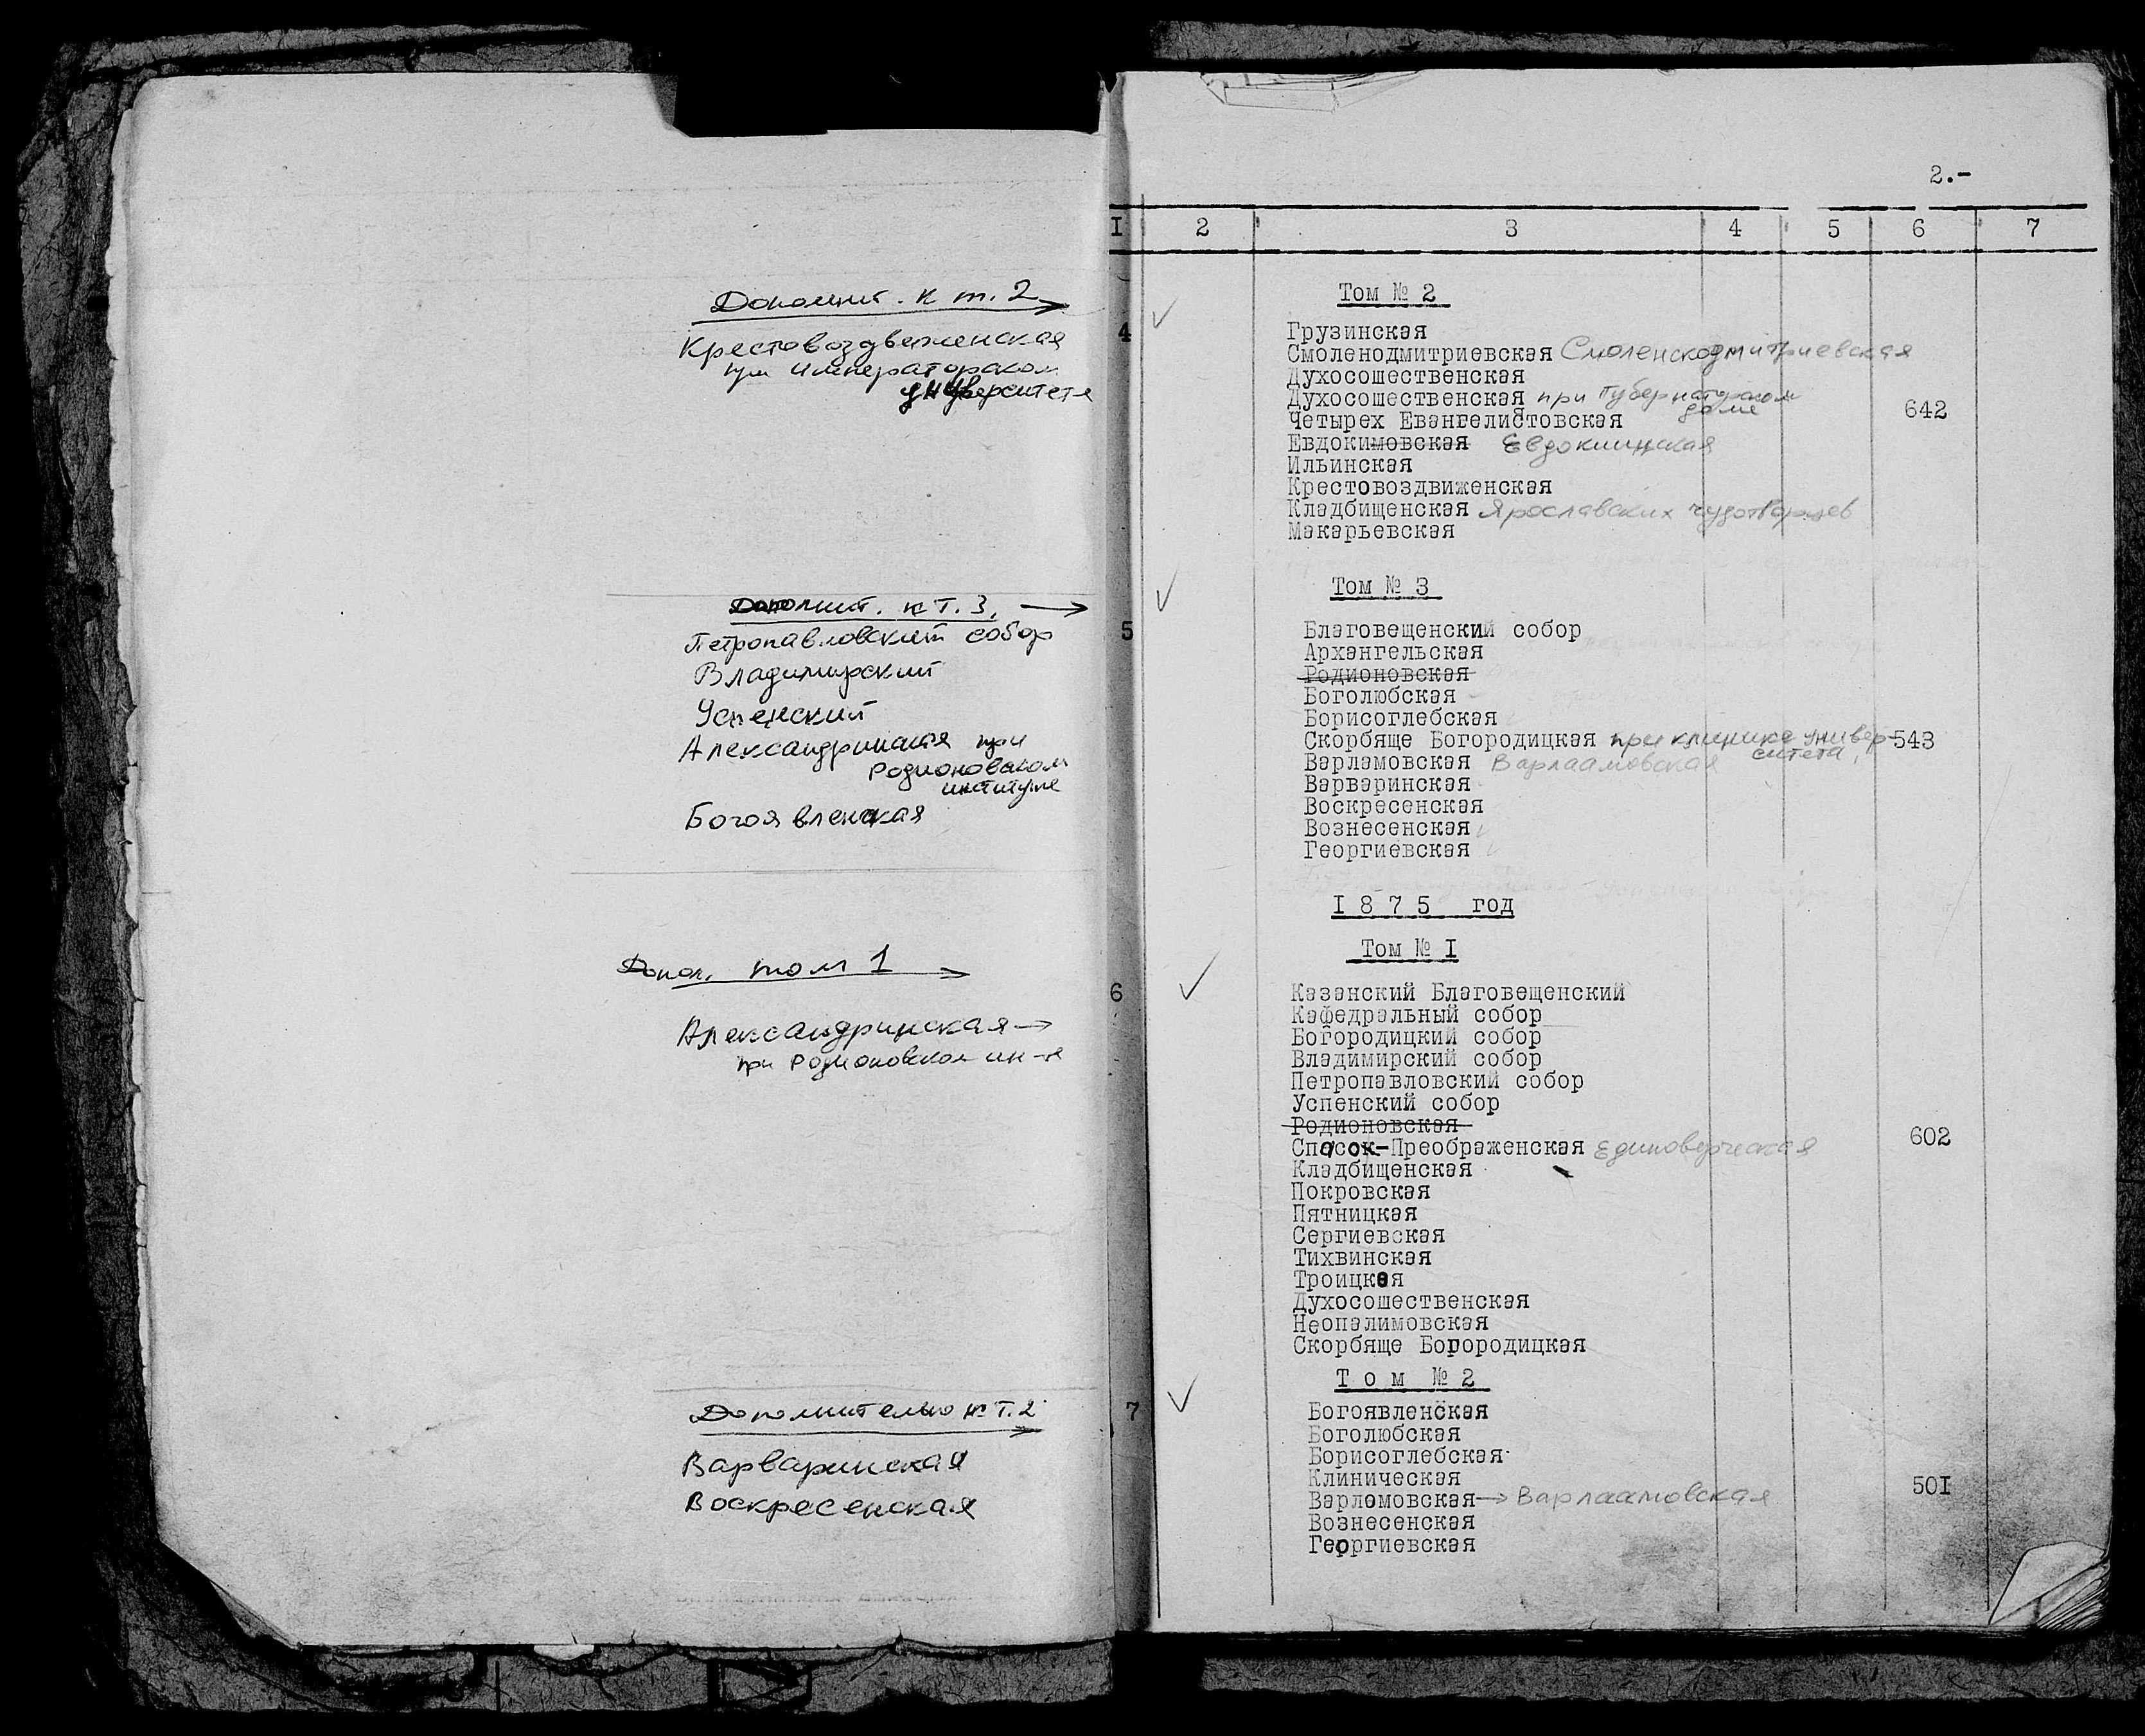 Дополнит. к т. 2
Крестовоздвиженская
при императорском
университете
Дополнит. к т. 3.
Петропавловский собор
Владимирский
Успенский
Александринская при
Родионовском
институте
Богоявленская
Допол. том 1
Александринская
при Родионовском ин-те
Дополнительно к т. 2
Варваринская
Воскресенская
2.-
I 2 3 4 5 6 7
Том № 2
4 Грузинская
Смоленодмитриевская Смоленскодмитриевская
Духосошественская
Духосошественская при Губернаторском
доме
Четырех Евангелистовская 642
Евдокимовская Евдокиинская
Ильинская
Крестовоздвиженская
Кладбищенская Ярославских чудотворцев
Макарьевская
Том № 3
5 Благовещенский собор
Архангельская
Родионовская
Боголюбская
Борисоглебская
Скорбяще Богородицкая при клинике универ- 543
ситета
Варламовская Варлаамовская
Варваринская
Воскресенская
Вознесенская
Георгиевская
I 8 7 5 год
Том № I
6 Казанский Благовещенский
Кафедральный собор
Богородицкий собор
Владимирский собор
Петропавловский собор
Успенский собор
Родионовская
Спасок-Преображенская Единоверческая 602
Кладбищенская
Покровская
Пятницкая
Сергиевская
Тихвинская
Троицкая
Духосошественская
Неопалимовская
Скорбяще Богородицкая
Т о м № 2
7 Богоявленская
Боголюбская
Борисоглебская
Клиническая
Варломовская → Варлаамовская 50I
Вознесенская
Георгиевская